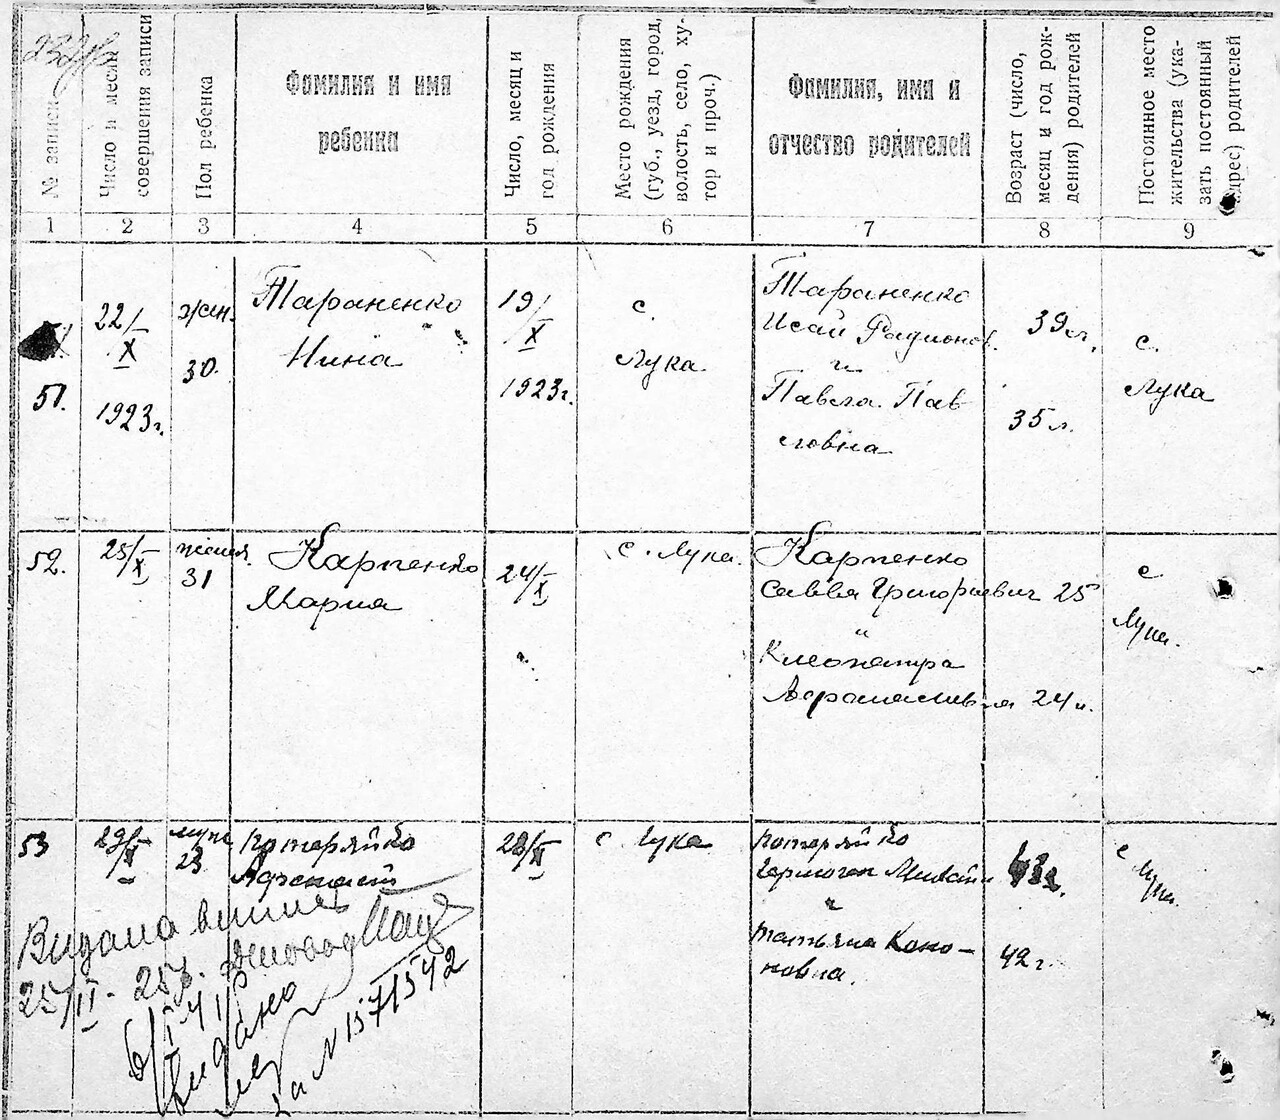 № записи
Число и месяц
совершения записи
Пол ребенка
Фамилия и имя
ребенка
Число, месяц и
год рождения
Место рождения
(губ., уезд, город,
волость, село, ху-
тор и проч.)
Фамилия, имя и
отчество родителей
Возраст (число,
месяц и год рож-
дения) родителей
Постоянное место
жительства (ука-
зать постоянный
адрес) родителей
1 2 3 4 5 6 7 8 9
51.
22/X
1923г.
жен.
30.
Тараненко
Нина
19/X
1923г.
с.
Лука
Тараненко
Исай Радионов.
и
Павла Пав
ловна
39л.
35л.
с.
Лука
52.
25/X
31
Карпенко
Мария
24/X
с. Лука.
Карпенко
Савва Григориевич 25
и
Клеопатра
24
с
Лука.
53
29/X
муж
23
Потеряйко
Афанасий
28/X
с Лука
Потеряйко
Гермоген
и
Татьяна Коно-
новна.
43
42г.
с
Лука.
Видана
25/II - 25
6/I 41
видано
за N 1571542